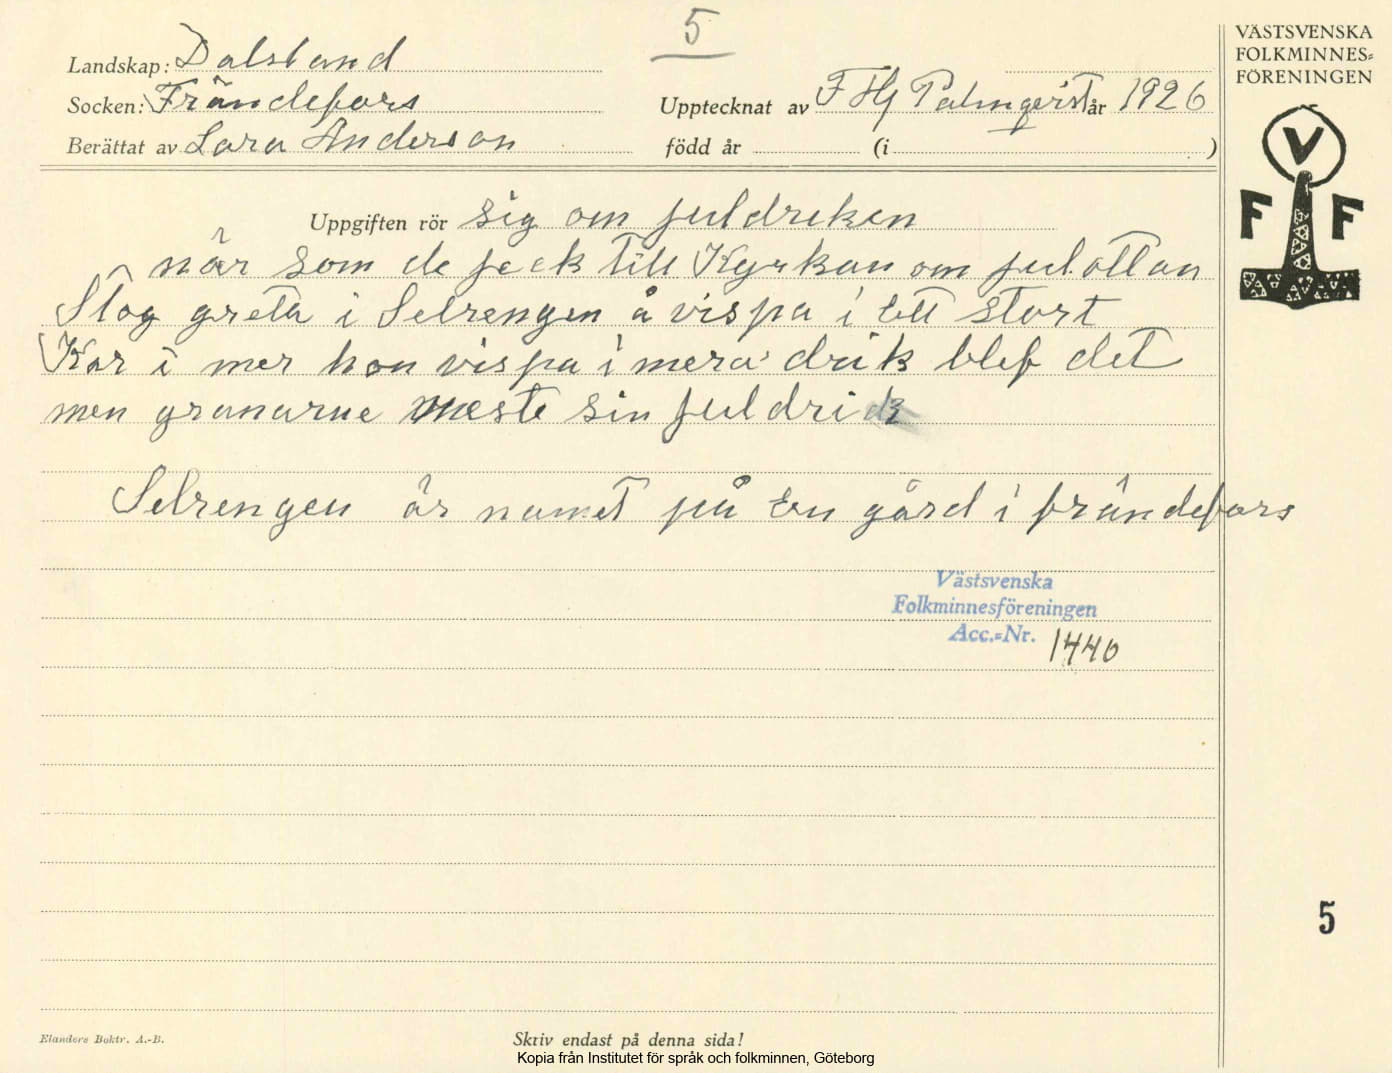 5
VÄSTSVENSKA
FOLKMINNES=
FÖRENINGEN
V
F F
Landskap: Dalsland
Socken: Frändefors
Upptecknat av F Hj Palmqvist år 1926
Berättat av Lara Anderson
född år (i )
Uppgiften rör sig om juldreken
når som de jeck till Kyrkan om jul.ottan
Stog greta i Selrengen å vispa i ett stort
Kar i mer hon vispa i mera drik blef det
men granarne meste sin juldrick
Selrengen är namet på en gård i frändefors
Västsvenska
Folkminnesföreningen
Acc.=Nr. 1440
5
Elanders Boktr. A.-B.
Skriv endast på denna sida!
Kopia från Institutet för språk och folkminnen, Göteborg